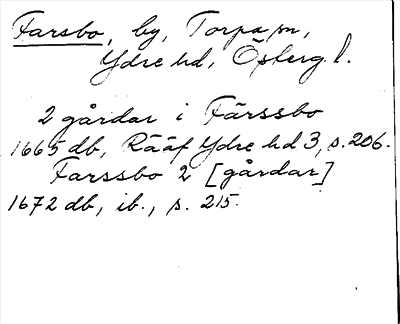 Farsbo, by, Torpa sn,
Ydre hd, Österg. l.
2 gårdar i Fårssbo
1665 db, Rääf Ydre hd 3, s. 206.
Farssbo 2 [gårdar]
1672 db, ib., s. 215.